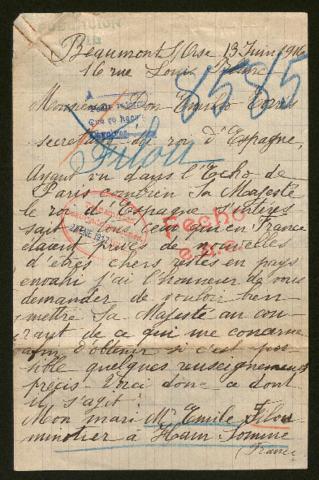 Beaumont s/Oise 13 Juin 1916
16 rue Louis
5585
Monsieur Don Emilio
secretaire du roi d'Espagne,
Filou
Ayant vu dans l'Echo de
Paris combien Sa Majesté
le roi d'Espagne s'intéres
sait à tous ceux qui en France
étaient privés de nouvelles
d'êtres chers restés en pays
envahi j'ai l'honneur de vous
demander de vouloir bien
mettre Sa Majesté au cou
rant de ce qui me concerne
afin d'obtenir si c'est pos
sible quelques renseignements
précis. Voici donc ce dont
il s'agit:
Mon mari Mr Emile Filou
minotier à Ham Somme
(France)
Fecho